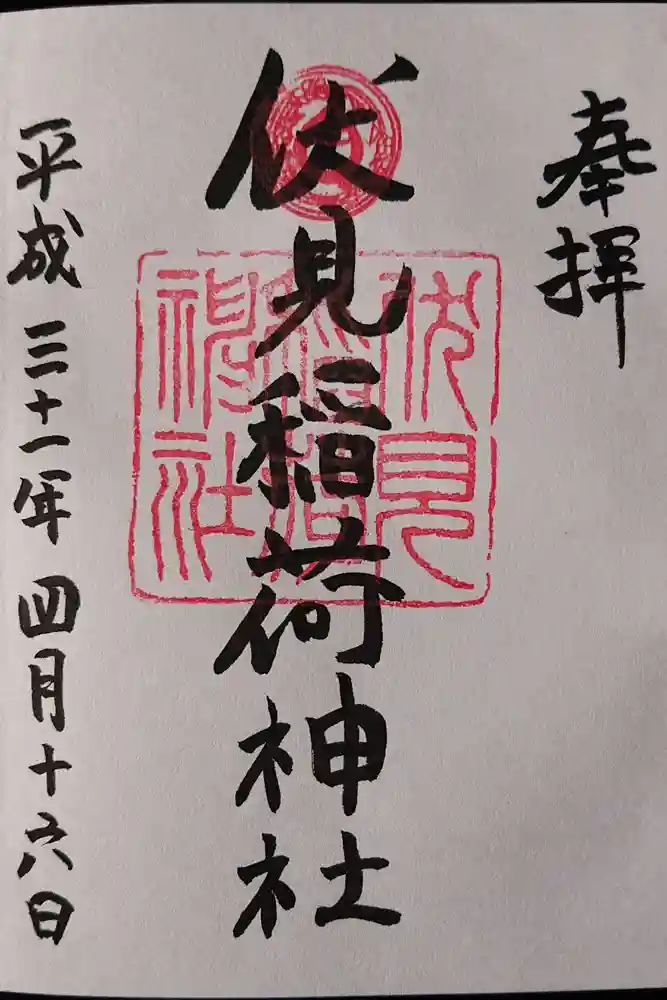 奉拝
伏見稲荷神社
平成三十一年四月十六日
伏見
稲荷
神社